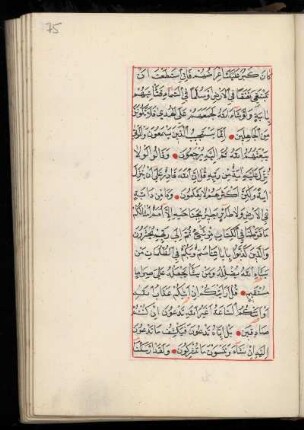 75
كان كبر عليك اعراضهم فان استطعت ان
تبتغي نفقا في الارض او سلما في السماء فتأتيهم
باية ولو شاء الله لجمعهم على الهدى فلا تكونن
من الجاهلين انما يستجيب الذين يسمعون والموتى
يبعثهم الله ثم اليه يرجعون وقالوا لولا
نزل عليه اية من ربه قل ان الله قادر على ان ينزل
اية ولكن اكثرهم لا يعلمون وما من دابة
في الارض ولا طائر يطير بجناحيه الا امم امثالكم
ما فرطنا في الكتاب من شيء ثم الى ربهم يحشرون
والذين كذبوا باياتنا صم وبكم في الظلمات من
يشاء الله يضلله ومن يشأ يجعله على صراط
مستقيم قل ارايتكم ان اتيكم عذاب الله
او اتتكم الساعة اغير الله تدعون ان كنتم
صادقين بل اياه تدعون فيكشف ما تدعون
اليه ان شاء وتنسون ما تشركون ولقد ارسلنا